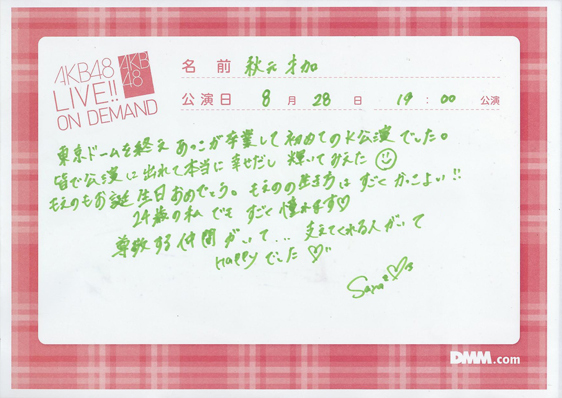 AKB48
LIVE!!
ON DEMAND
AKB
48
名前 秋元才加
公演日 8月28日 19:00公演
東京ドームを終え あっこが卒業して初めてのK公演でした。
皆で公演に出れて本当に幸せだし 輝いてみえた
もえのもお誕生日おめでとう。もえのの生き方は すごく かっこよい!!
24歳の私でも すごく憧れます♡
尊敬する仲間がいて... 支えてくれる人がいて
Happyでした♡
Saya
DMM.com